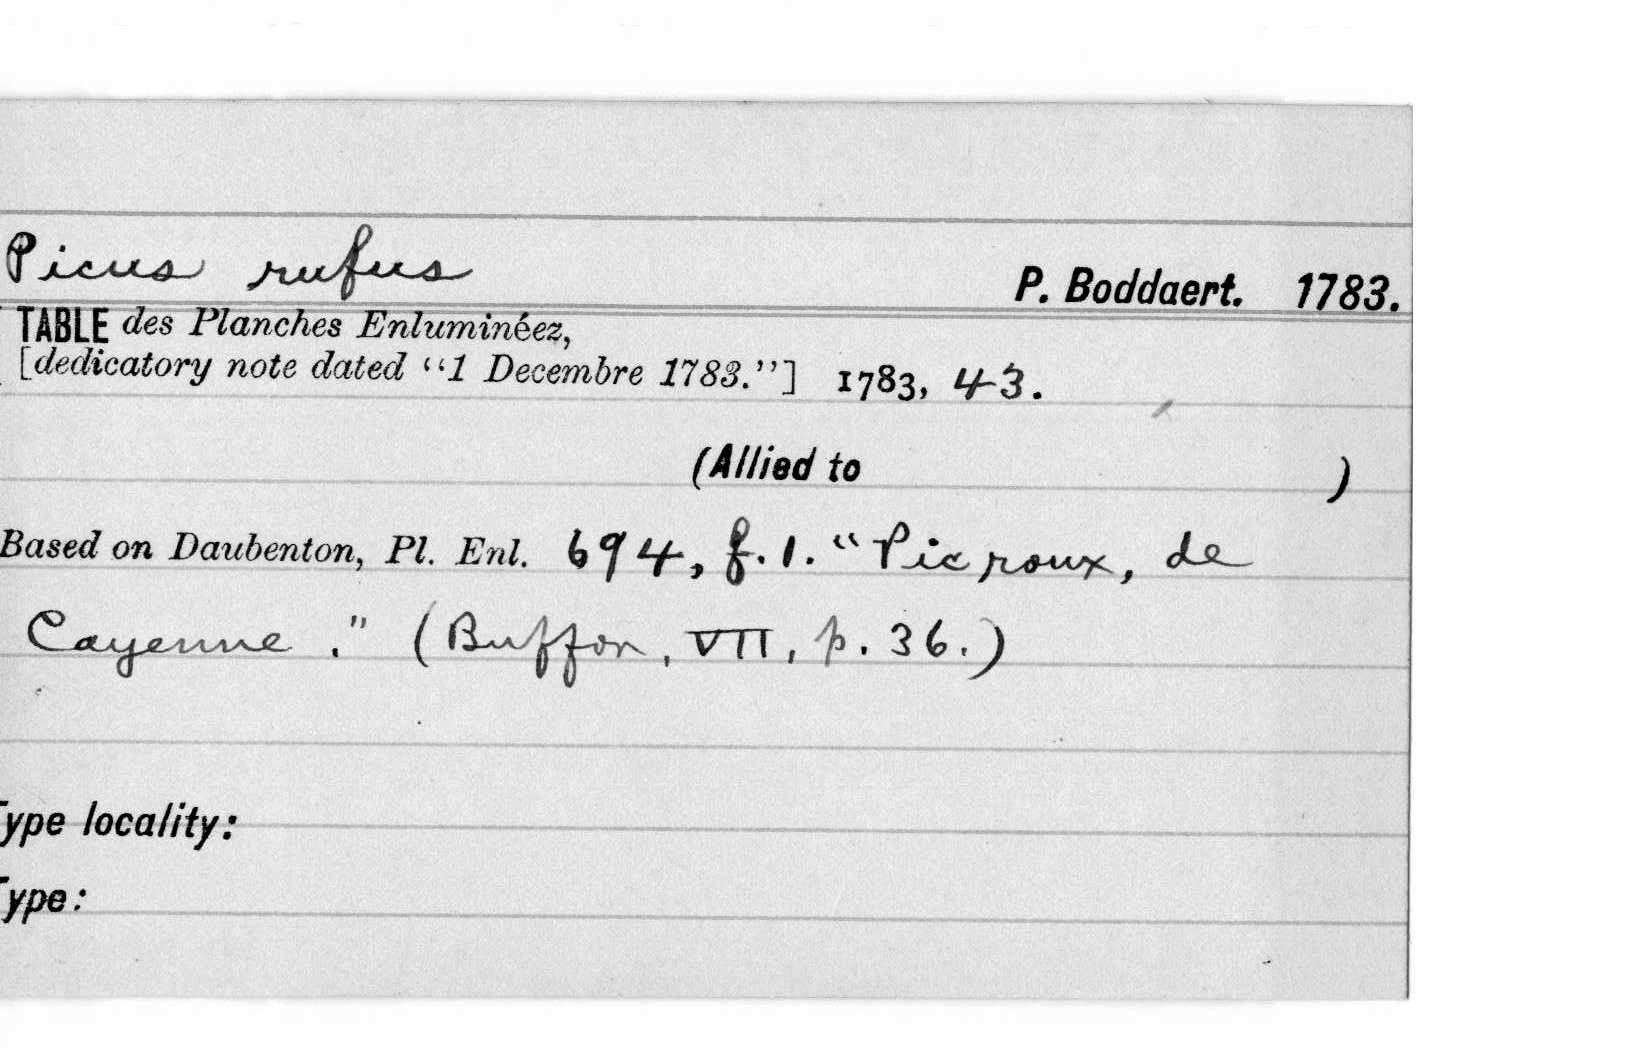 Picus rufus P. Boddaert. 1783.
TABLE des Planches Enluminéez,
[dedicatory note dated “1 Decembre 1783.”] 1783, 43.
(Allied to )
Based on Daubenton, Pl. Enl. 694, f. 1. “Pic roux, de
Cayenne." (Buffon, VII, p. 36.)
ype locality:
ype: